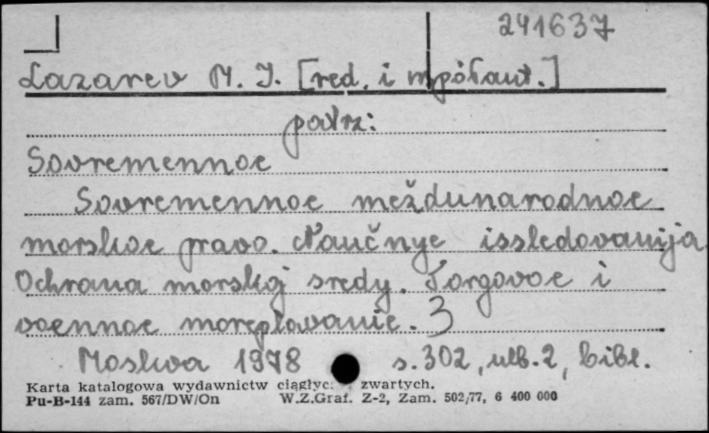 241637
Lazarev M. I. [red. i współaut.]
patrz:
Sovremennoe
Sovremennoe meždunarodnoe
morskoe pravo. Naučnye issledovanija
Ochrana morskoj sredy. Torgovoe i
voennoe moreplavanie. 3
Moskva 1978 s. 302, nlb. 2, bibl.
Karta katalogowa wydawnictw ciągłyc. zwartych.
Pu-B-144 zam. 567/DW/On W.Z.Graf. Z-2, Zam. 502/77, 6 400 000